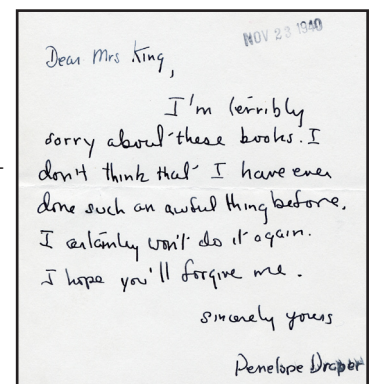 NOV 23 1940
Dear Mrs King,
I'm terribly
sorry about these books. I
don't think that I have ever
done such an awful thing before.
I certainley won't do it again.
I hope you'll forgive me.
Sincerely yours
Penelope Draper